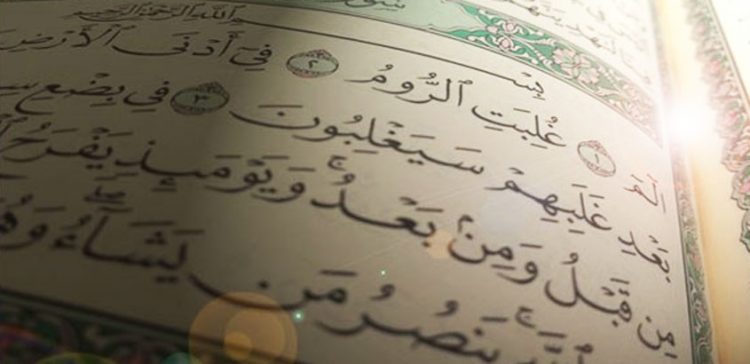 سورة
بسم ٱللَّهِ ٱلرَّحْمَٰنِ ٱلرَّحِيمِ
الٓمٓ ١ غُلِبَتِ ٱلرُّومُ ٢ فِىٓ أَدْنَى ٱلْأَرْضِ
بَعْدِ غَلَبِهِمْ سَيَغْلِبُونَ ٣ فِى بِضْعِ
مِن قَبْلُ وَمِنۢ بَعْدُ ۚ وَيَوْمَئِذٍ يَفْرَحُ
يَنصُرُ مَن يَشَآءُ ۖ